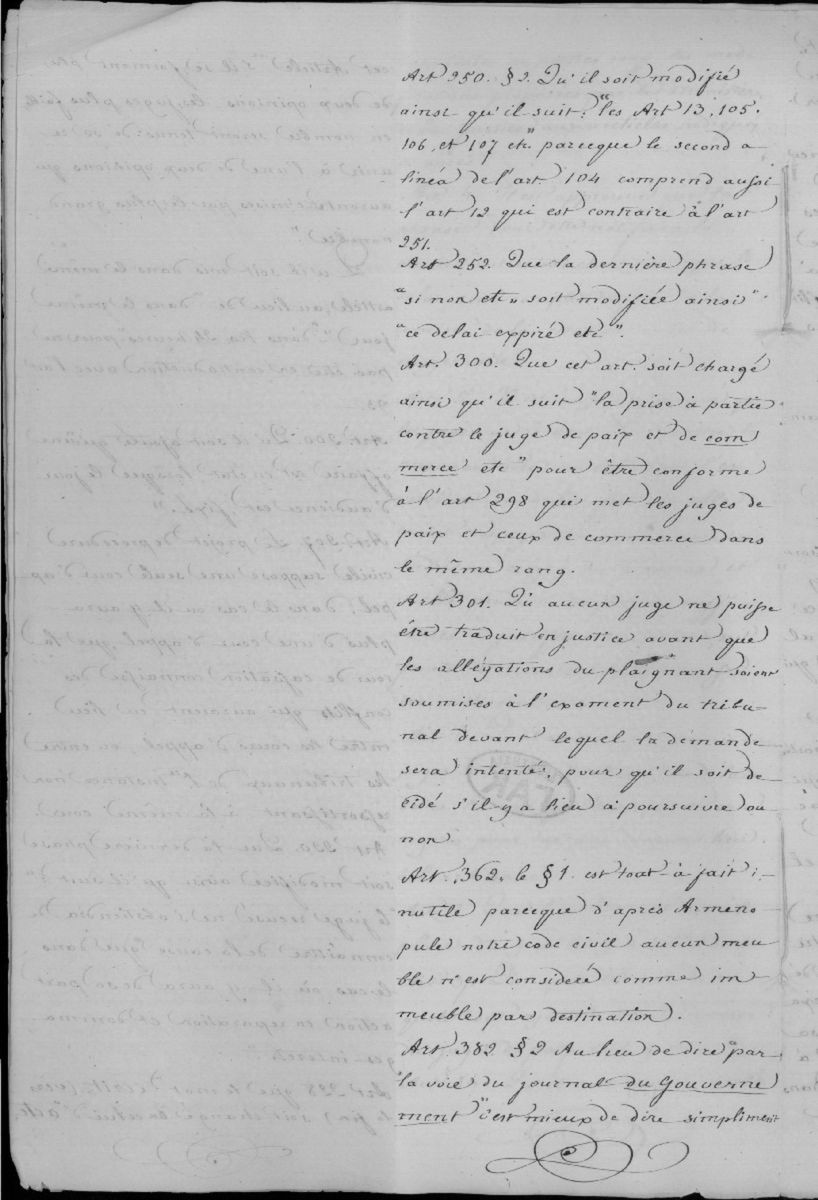 Art 250. § 2. Qu'il soit modifié
ainsi qu'il suit: "les Art 13, 105.
106, et 107 etc" parceque le second a-
linéa de l'art. 104 comprend aussi
l'art 12 qui est contraire à l'art
251.
Art 252. Que la dernière phrase
"si non etc" soit modifiée ainsi"
"ce delai expiré etc".
Art. 300. Que cet art. soit chargé
ainsi qu'il suit "la prise à partie
contre le juge de paix et de com
merce etc" pour être conforme
à l'art 298 qui met les juges de
paix et ceux de commerce dans
le même rang.
Art 301. Qu'aucun juge ne puisse
être traduit en justice avant que
les allégations du plaignant soient
soumises à l'exament du tribu-
nal devant lequel la demande
sera intenté, pour qu'il soit de-
cidé s'il y a lieu à poursuivre ou
non
Art. 362. le § 1. est tout-à-fait i-
nutile parceque d'après Armeno-
pule notre code civil aucun meu-
ble n'est consideré comme im
meuble par destination.
Art 382 § 2 Au lieu de dire "par
la voie du journal du Gouverne
ment" c'est mieux de dire simpliment